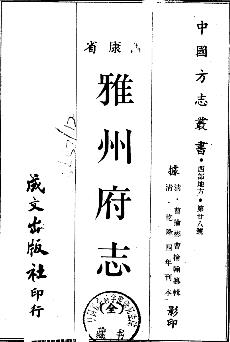 中國方志叢書·西部地方·第廿八號
據清·曹掄彬等修 曹掄翰等纂
清·乾隆四年刊本
影印
西康省
雅州府志
(全)
成文出版社印行